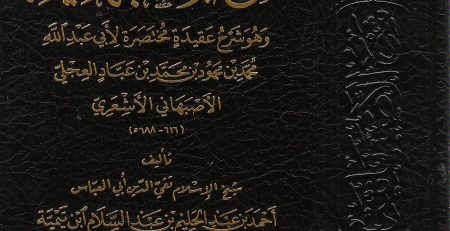 وَهُوَ شَرْحُ عَقِيدَةٍ مُخْتَصَرَةٍ لِأَبِي عَبْدِ اللَّهِ
مُحَمَّدِ بْنِ مَحْمُودِ بْنِ مُحَمَّدِ بْنِ عَبَّادٍ العِجْلِيِّ
الأَصْبَهَانِيِّ الأَشْعَرِيِّ
(٦١٦-٦٨٨هـ)
تَأْلِيف
شَيْخِ الإِسْلَامِ تَقِيِّ الدِّينِ أَبِي العَبَّاسِ
أَحْمَدَ بْنِ عَبْدِ الحَلِيمِ بْنِ عَبْدِ السَّلَامِ ابْنِ تَيْمِيَّةَ